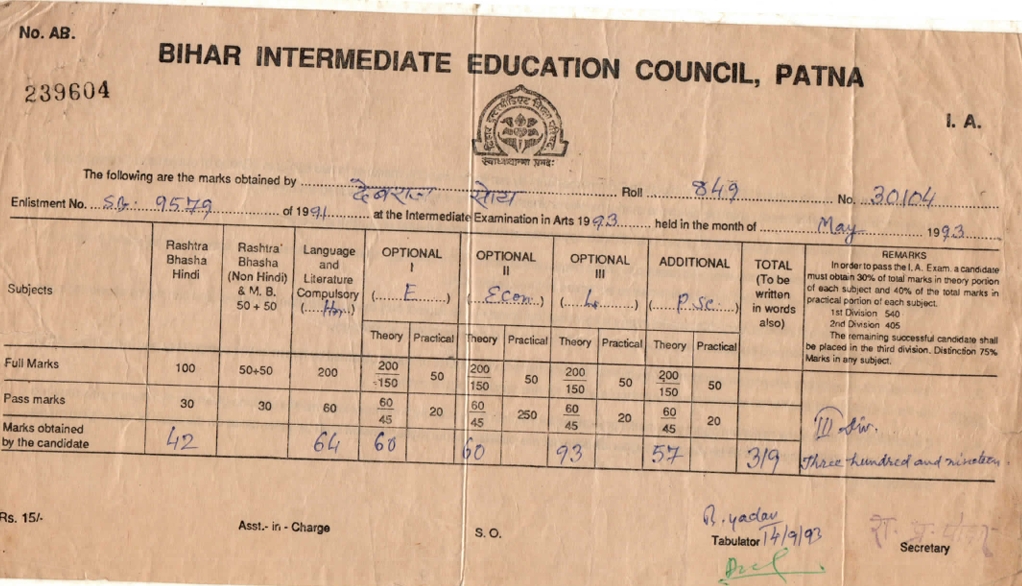 No. AB.
BIHAR INTERMEDIATE EDUCATION COUNCIL, PATNA
239604
I. A.
The following are the marks obtained by देबराज सोय Roll 849 No. 30104
Enlistment No. S.B. 9579 of 1991 at the Intermediate Examination in Arts 1993 held in the month of May 1993
Subjects
Rashtra Bhasha Hindi
Rashtra Bhasha (Non Hindi) & M. B. 50 + 50
Language and Literature Compulsory (Hn.)
OPTIONAL I (E)
OPTIONAL II (Econ.)
OPTIONAL III
ADDITIONAL (P.Sc.)
TOTAL (To be written in words also)
REMARKS
In order to pass the I. A. Exam. a candidate
must obtain 30% of total marks in theory portion
of each subject and 40% of the total marks in
practical portion of each subject.
1st Division 540
2nd Division 405
The remaining successful candidate shall
be placed in the third division. Distinction 75%
Marks in any subject.
Theory Practical Theory Practical Theory Practical Theory Practical
Full Marks 100 50+50 200 200/150 50 200/150 50 200/150 50 200/150 50
Pass marks 30 30 60 60/45 20 60/45 250 60/45 20 60/45 20
Marks obtained by the candidate 42 64 60 60 93 57 319
III Div.
Three hundred and nineteen
Rs. 15/-
Asst.- in - Charge
S. O.
B. Yadav
Tabulator 14/9/93
Secretary